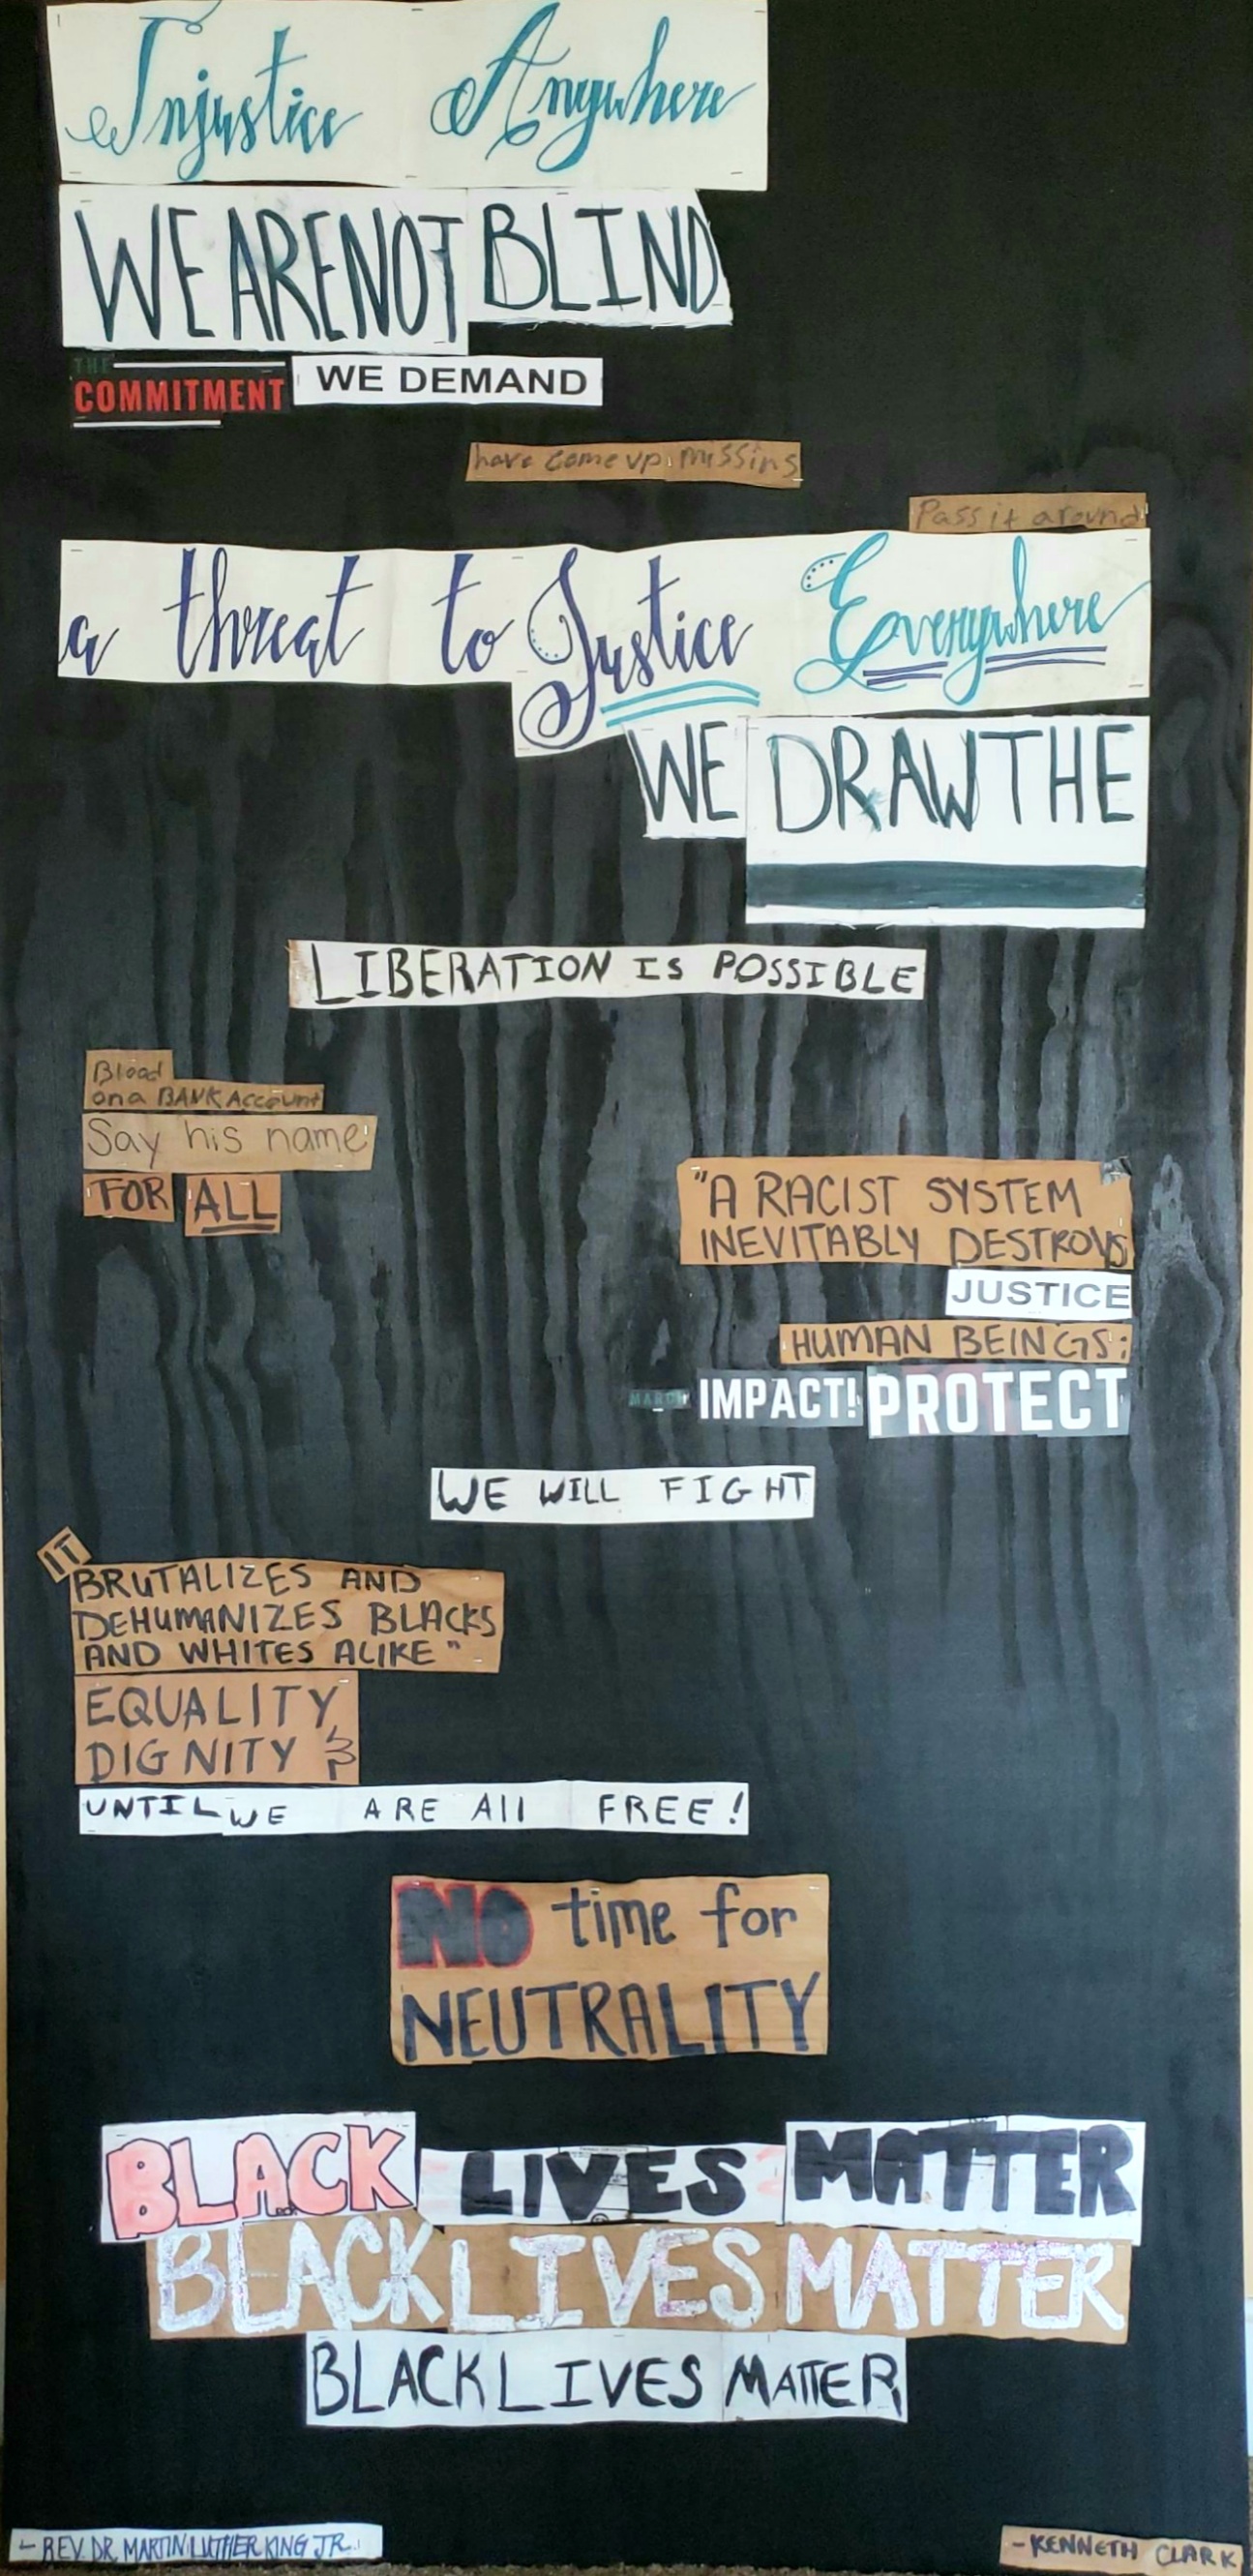 Injustice Anywhere
WE ARE NOT BLIND
THE
COMMITMENT WE DEMAND
have come up missing
Pass it around
a threat to Justice Everywhere
WE DRAW THE
LIBERATION IS POSSIBLE
Blood
on a BANK Account
Say his name
FOR ALL
"A RACIST SYSTEM
INEVITABLY DESTROYS
JUSTICE
HUMAN BEINGS:
MARCH IMPACT! PROTECT
WE WILL FIGHT
IT
BRUTALIZES AND
DEHUMANIZES BLACKS
AND WHITES ALIKE"
EQUALITY
DIGNITY &
UNTIL WE ARE All FREE!
NO time for
NEUTRALITY
BLACK LIVES MATTER
BLACK LIVES MATTER
BLACK LIVES MATTER
- REV. DR. MARTIN LUTHER KING JR.
- KENNETH CLARK